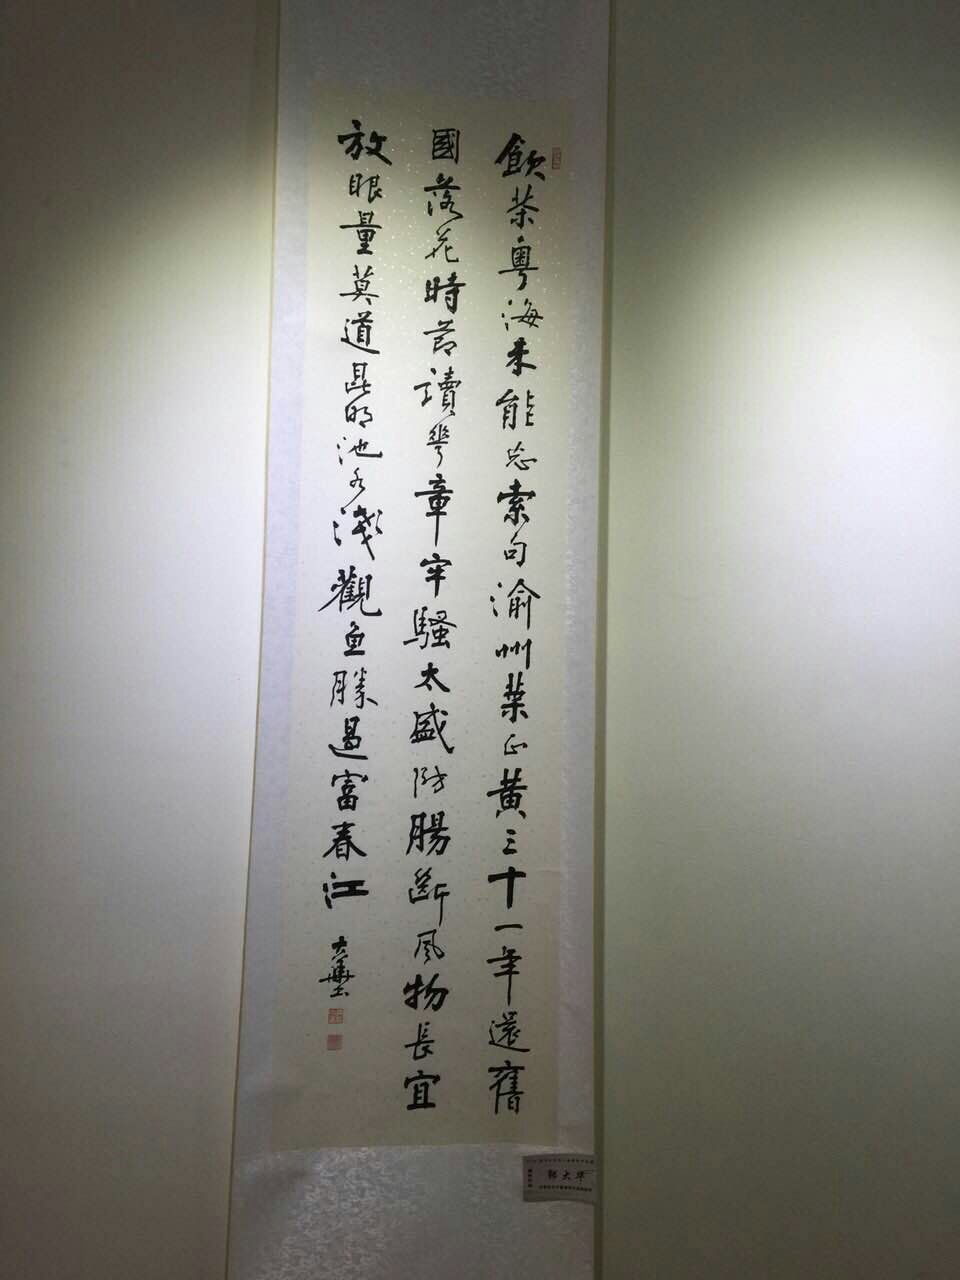 飲茶粵海未能忘索句渝州葉正黃三十一年還舊
國落花時節讀華章牢騷太盛防腸斷風物長宜
放眼量莫道昆明池水淺觀魚勝過富春江
大華
大华